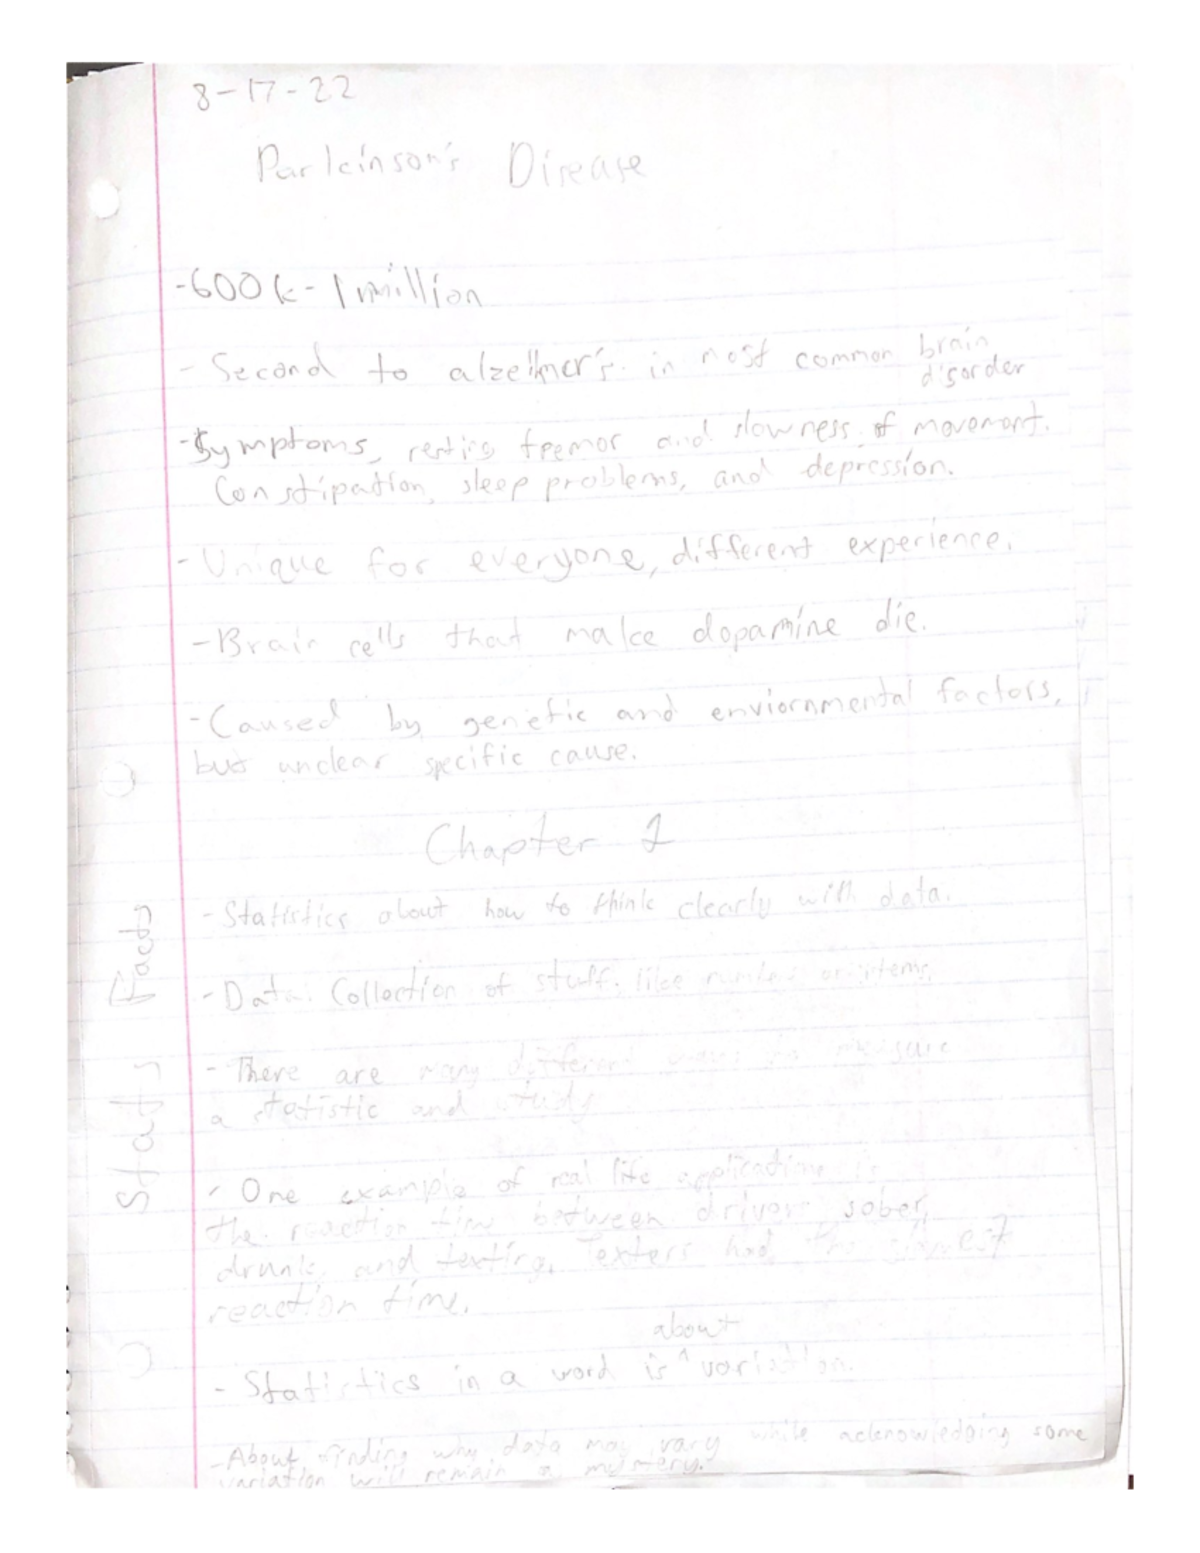 8-17-22
Parkinson's Disease
-600k-1 million
- Second to alzeihmer's in most common brain disorder
-Symptoms, resting tremor and slowness of movement.
Constipation, sleep problems, and depression.
- Unique for everyone, different experience.
- Brain cells that make dopamine die.
- Caused by genetic and enviornmental factors,
but unclear specific cause.
Chapter 1
Stats Facts
- Statistics about how to think clearly with data.
- Data: Collection of stuff, like numbers or items.
- There are many different ways to measure
a statistic and study
- One example of real life application is
the reaction time between drivers sober,
drunk, and texting. Texters had the slowest
reaction time.
- Statistics in a word is ^about variation.
-About finding why data may vary while acknowledging some
variation will remain a mystery.